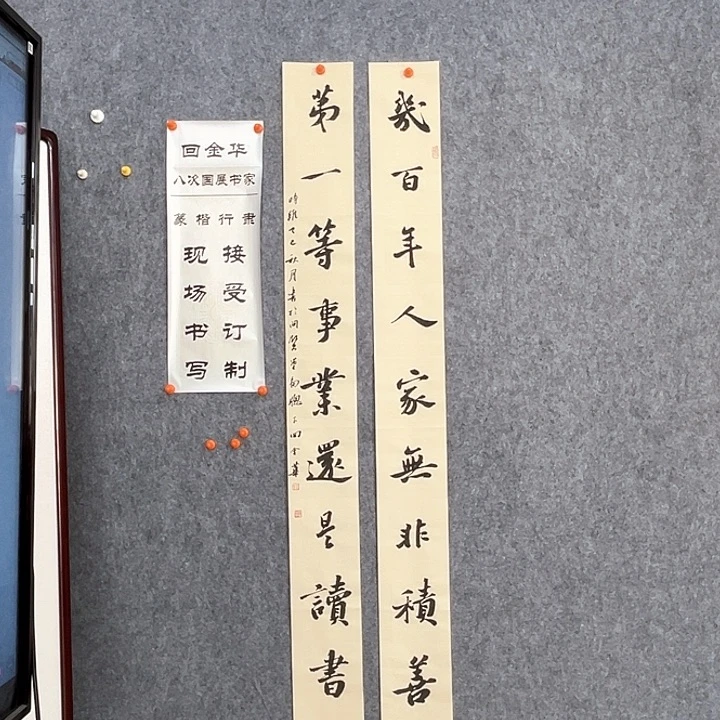 回金华
八次国展书家
篆楷行隶
接受订制
现场书写
幾百年人家無非積善
第一等事業還是讀書
時維乙巳秋月書於問賢堂南牕下回金華